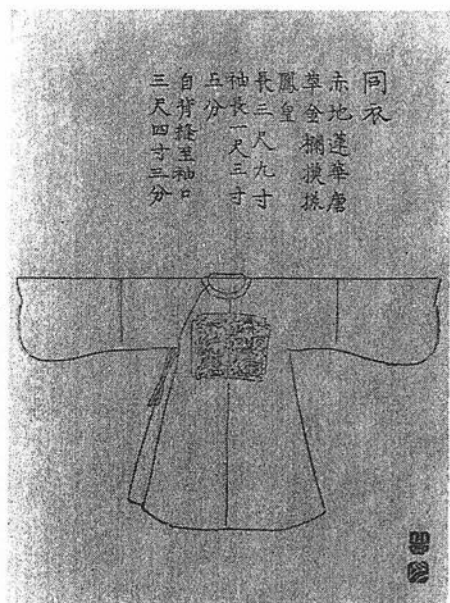 同衣
赤地蓮華唐
草金襴摸様
鳳皇
長三尺九寸
袖長一尺三寸
五分
自背縫至袖口
三尺四寸三分